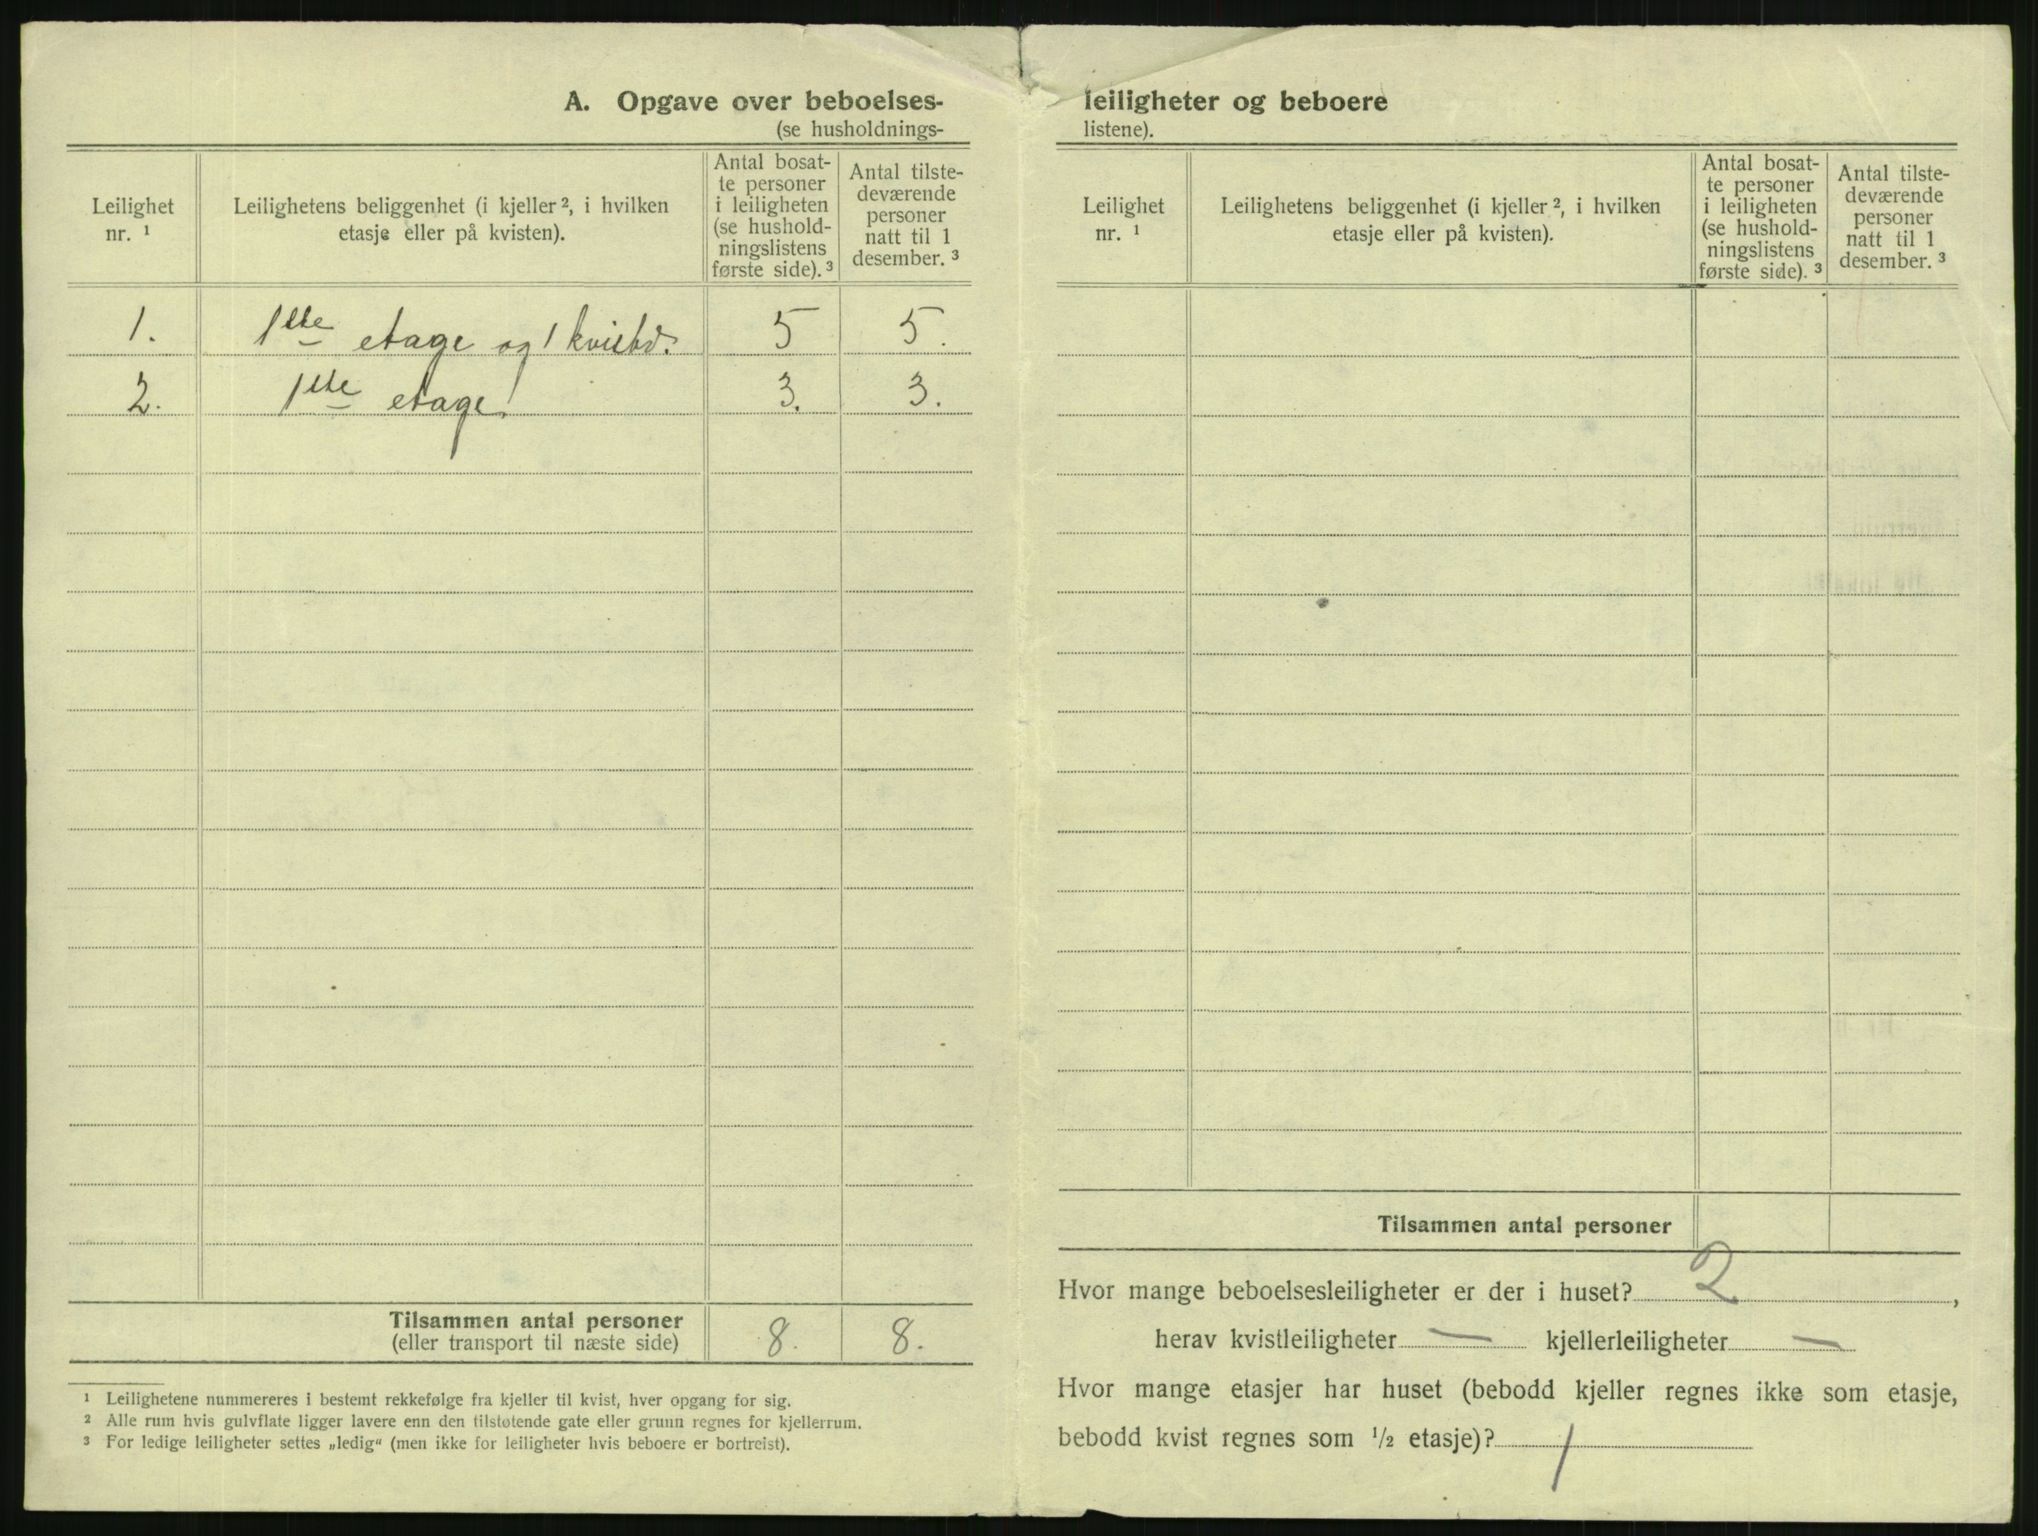 A. Opgave over beboelses-
(se husholdnings-
Leilighet nr. ¹
Leilighetens beliggenhet (i kjeller ², i hvilken
etasje eller på kvisten).
Antal bosat-
te personer
i leiligheten
(se hushold-
ningslistens
første side). ³
Antal tilste-
deværende
personer
natt til 1
desember. ³
1. 1ste etage og 1 kvistv. 5 5.
2. 1ste etage 3. 3.
Tilsammen antal personer 8. 8.
(eller transport til næste side)
¹ Leilighetene nummereres i bestemt rekkefølge fra kjeller til kvist, hver opgang for sig.
² Alle rum hvis gulvflate ligger lavere enn den tilstøtende gate eller grunn regnes for kjellerrum.
³ For ledige leiligheter settes „ledig“ (men ikke for leiligheter hvis beboere er bortreist).
leiligheter og beboere
listene).
Leilighet
nr. ¹
Leilighetens beliggenhet (i kjeller ², i hvilken
etasje eller på kvisten).
Antal bosat-
te personer
i leiligheten
(se hushold-
ningslistens
første side). ³
Antal tilste-
deværende
personer
natt til 1
desember. ³
Tilsammen antal personer
Hvor mange beboelsesleiligheter er der i huset? 2,
herav kvistleiligheter — kjellerleiligheter —
Hvor mange etasjer har huset (bebodd kjeller regnes ikke som etasje,
bebodd kvist regnes som ½ etasje)? 1